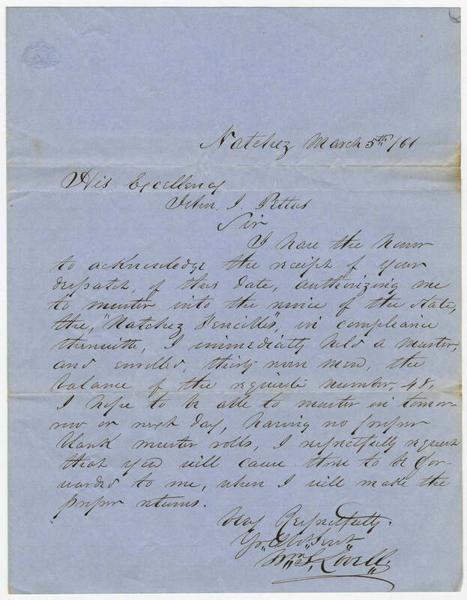 Natchez March 5th /61
His Excellency
John J. Pettus
Sir
I have the honor
to acknowledge the receipt of your
despatch, of this date, authorizing me
to muster into the service of the State,
the, "Natchez Fencibles", in compliance
therewith, I immediately held a muster,
and enrolled, thirty nine men, the
balance of the requisite number, 48,
I hope to be able to muster in tomor
row or next day, having no proper
blank muster rolls, I respectfully request
that you will cause them to be for
warded to me, when I will make the
proper returns.
Very Respectfully.
Yr. Obt. Svt
Wm. S. Lovell